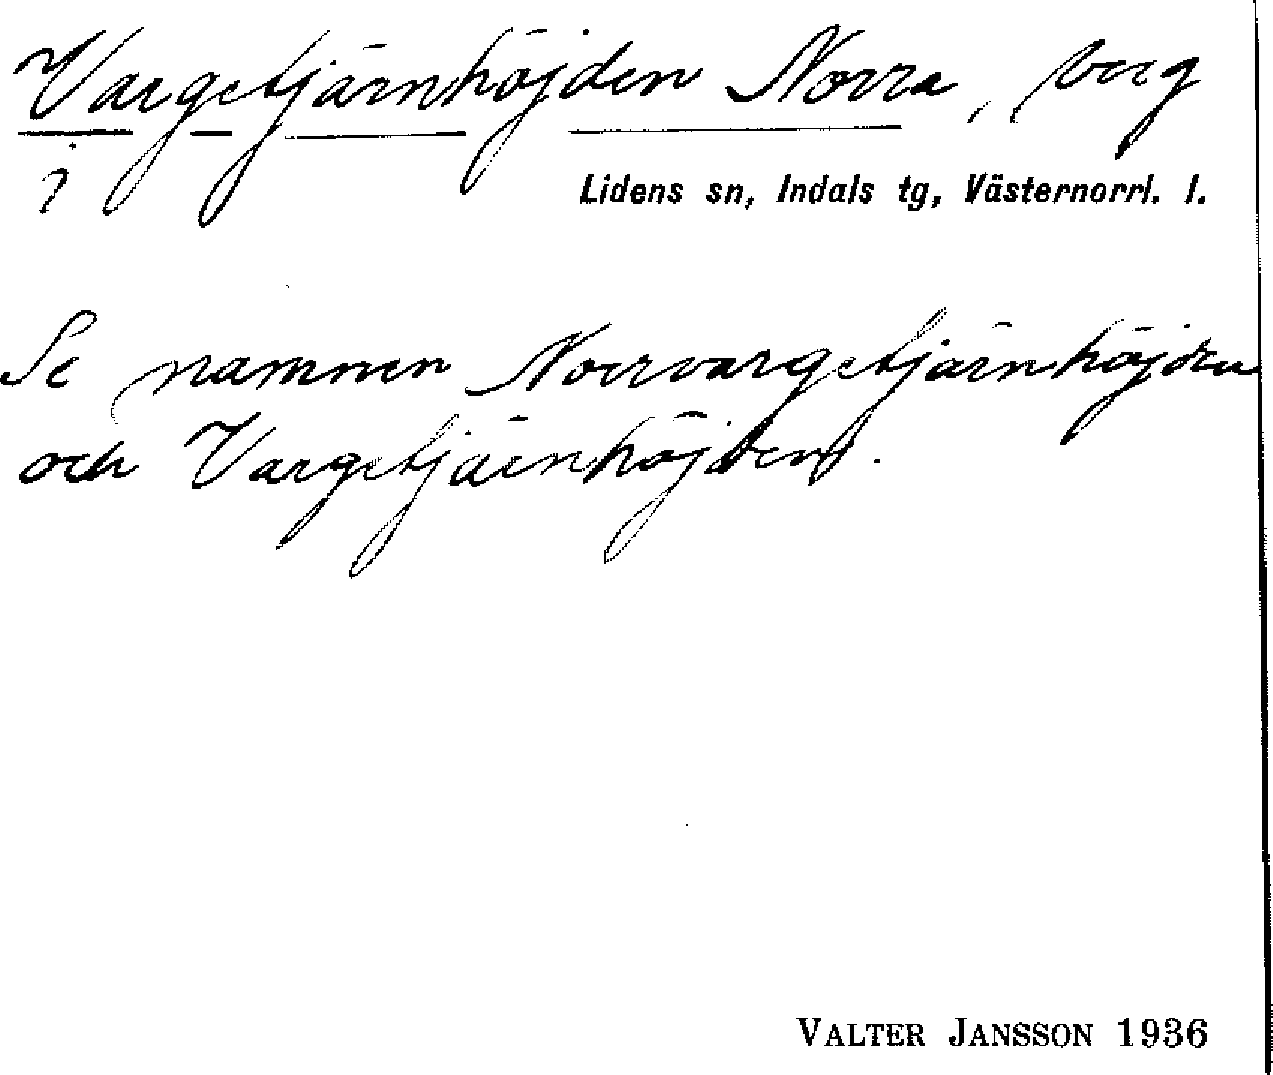 Vargetjärnhöjden Norra, berg
i Lidens sn, Indals tg, Västernorrl. l.
Se namnen Norrvargetjärnhöjden
och Vargetjärnhöjden.
VALTER JANSSON 1936